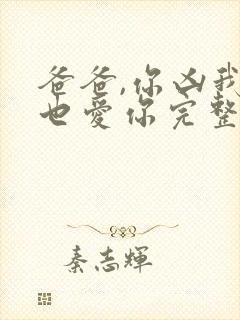 爸爸,你凶我
也愛你完整
秦志輝